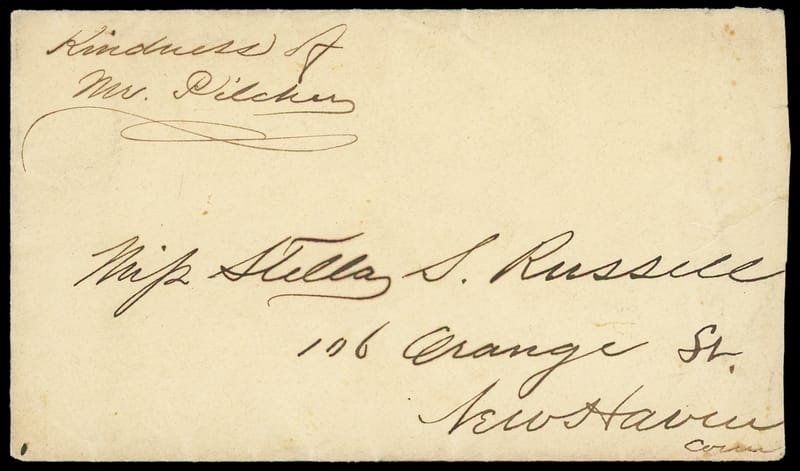 Kindness of
Mr. Pilcher
Miss Stella S. Russell
106 Orange St.
New Haven
Conn